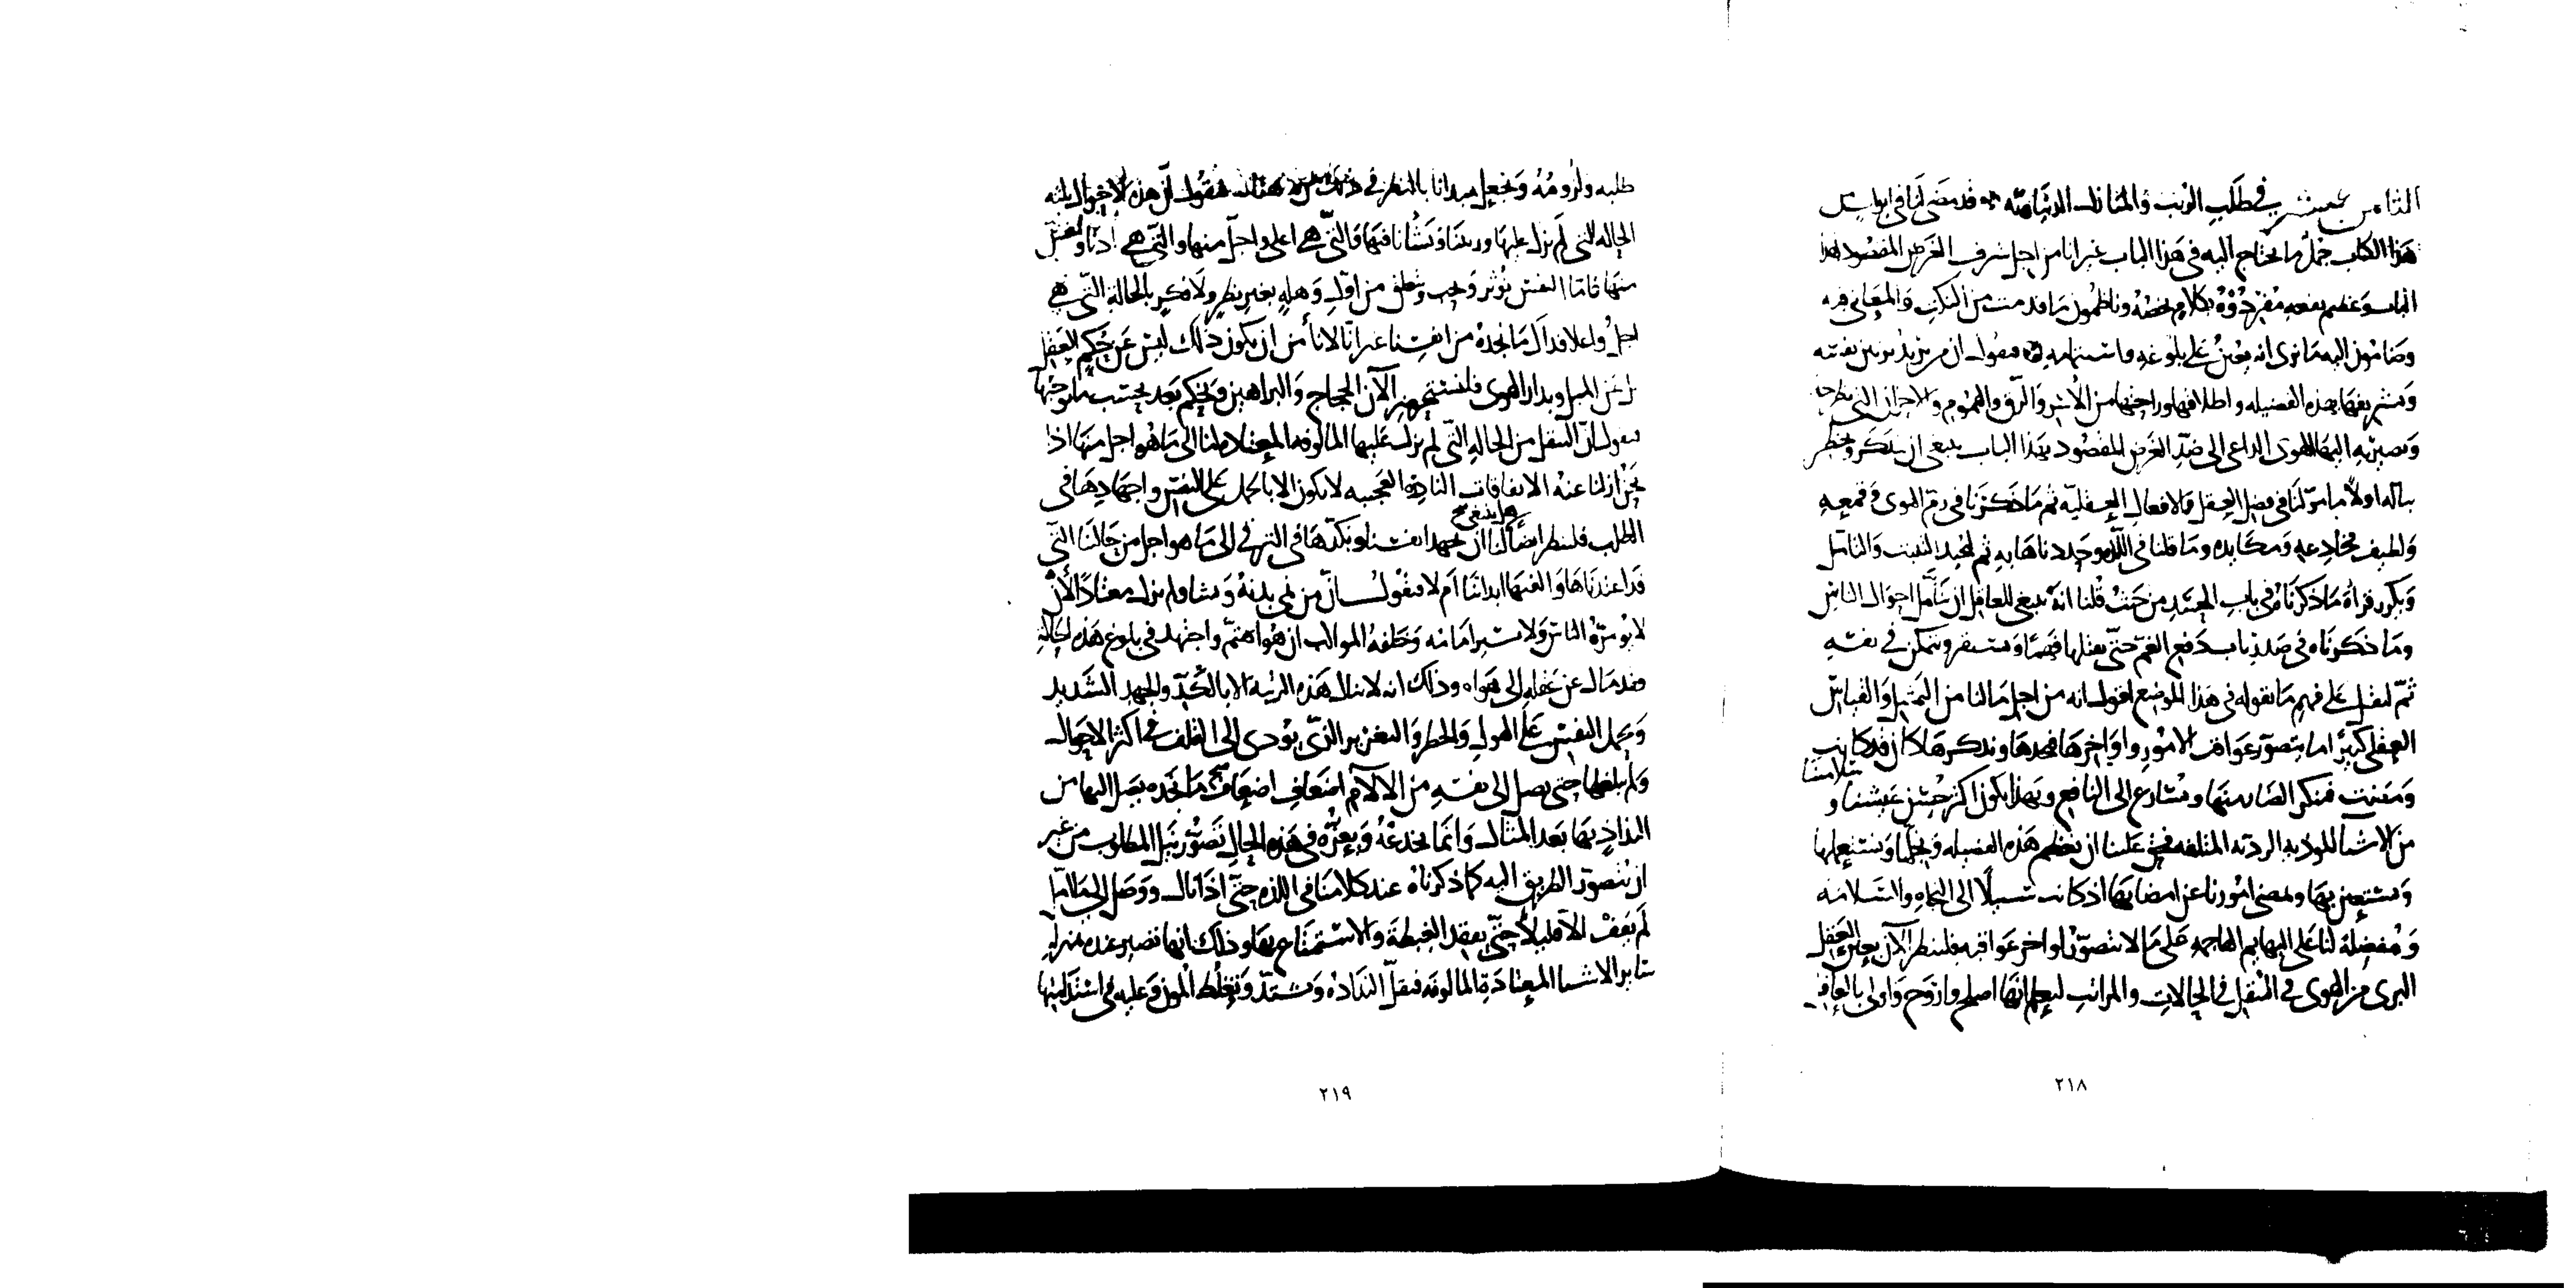 الثامن عشر في طلب الرتب والمنازل الدنيائيه قد مضى لنا في ابواب من
هذا الكتاب جمل ما يحتاج اليه في هذا الباب غير انا من اجل شرف الغرض المقصود بهذا
الباب وعظم نفعه مفردوه بكلام يخصه وناظمون ما قد مضت من النكت والمعاني فيه
وضامون اليه ما نرى انه يعين على بلوغه واستتمامه فنقول ان من يريد تزيين نفسه
وتشريفها بهذه الفضيله واطلاقها وراحتها من الاسر والرق والهموم والاحزان التي تطرحه
وتصير به اليها الهوى الداعي الى ضد الغرض المقصود بهذا الباب ينبغي ان يتذكر ويخطر
بباله اولا ما مر لنا في فضل العقل والافعال العقليه ثم ما ذكرنا في زم الهوى وقمعه
ولطيف مخادعه ومكايده وما قلنا في اللذه وحددناها به ثم ليجد التثبت والتأمل
ويكرر قراة ما ذكرناه في باب الحسد من حيث قلنا انه ينبغي للعاقل ان يتأمل احوال الناس
وما ذكرناه في صدر باب دفع الغم حتى يقتلها فهما وتستقر وتتمكن في نفسه
ثم ليقبل على فهم ما نقوله في هذا الموضع اقول انه من اجل ما لنا من التمثيل والقياس
العقلي كثيرا ما نتصور عواقب الامور واواخرها فنجدها وندركها كأن قد كانت
ومضت فنتنكب الضار منها ونسارع الى النافع وبهذا يكون اكثر حسن عيشنا وسلامتنا
من الاشيا الموذيه الرديه المتلفه فحق علينا ان نعظم هذه الفضيله ونجلها ونستعملها
ونستعين بها ونمضي امورنا عن امضايها اذ كانت سبيلا الى النجاه والسلامه
ومفضلة لنا على البهايم الهاجمه على ما لا تتصور اواخره وعواقبه فلننظر الآن بعين العقل
البري من الهوى في التنقل في الحالات والمراتب لنعلم ايها اصلح واروح واولى بالعاقل
٢١٨
طلبه ولزومه ونجعل مبدانا بالنظر في ذلك من هناك فنقول ان هذه الاحوال ثلثه
الحاله التي لم نزل عليها وربينا ونشأنا فيها والتي هي اعلى واجل منها والتي هي ادنا واخس
منها فاما ان النفس توثر وتحب وتتعلق من اول وهله بغير نظر ولا فكر بالحالة التي هي
اجل واعلا فذاك ما نجده من انفسنا غير انا لا نأمن ان يكون ذلك ليس عن حكم العقل
بل عن الميل وبدار الهوى فلنستحضر الآن الحجاج والبراهين ونحكم بعد بحسب ما توجبها
فنقول ان التنقل من الحاله التي لم نزل عليها المالوفه المعتاده لنا الى ما هو اجل منها اذا
نحن ازلنا عنه الاتفاقات النادره العجيبه لا يكون الا بالحمل على النفس واجهادها في
الطلب فلننظر ايضا هل ينبغي لنا ان نجهد انفسنا ونكدها في الترقي الى ما هو اجل من حالنا التي
قد اعتدناها والفتها ابداننا ام لا فنقول ان من نمى بدنه ونشا ولم يزل معتادا لأن
لا يومره الناس ولا تسير امامه وخلفه المواكب ان هو اهتم واجتهد في بلوغ هذه الحالة
فقد مال عن عقله الى هواه وذلك انه لا ينال هذه الرتبه الا بالكد والجهد الشديد
وحمل النفس على الهول والخطر والتغرير الذي يودي الى التلف في اكثر الاحوال
ولم يبلغها حتى يصل الى نفسه من الالام اضعاف اضعاف ما نجده يصل اليها من
الالتذاذ بها بعد المنال وانما يخدعه ويغره في هذه الحال تصور نيل المطلوب من غير
ان يتصور الطريق اليه كما ذكرناه عند كلامنا في اللذه حتى اذا نال ووصل الى ما امل
لم يقف الا قليلا حتى يفقد الغبطة والاستمتاع بها وذلك انها تصير عنده بمنزله
ساير الاشيا المعتادة المالوفه فتقل التذاذه وتشتد وتغلظ المون عليه في استدامتها
٢١٩